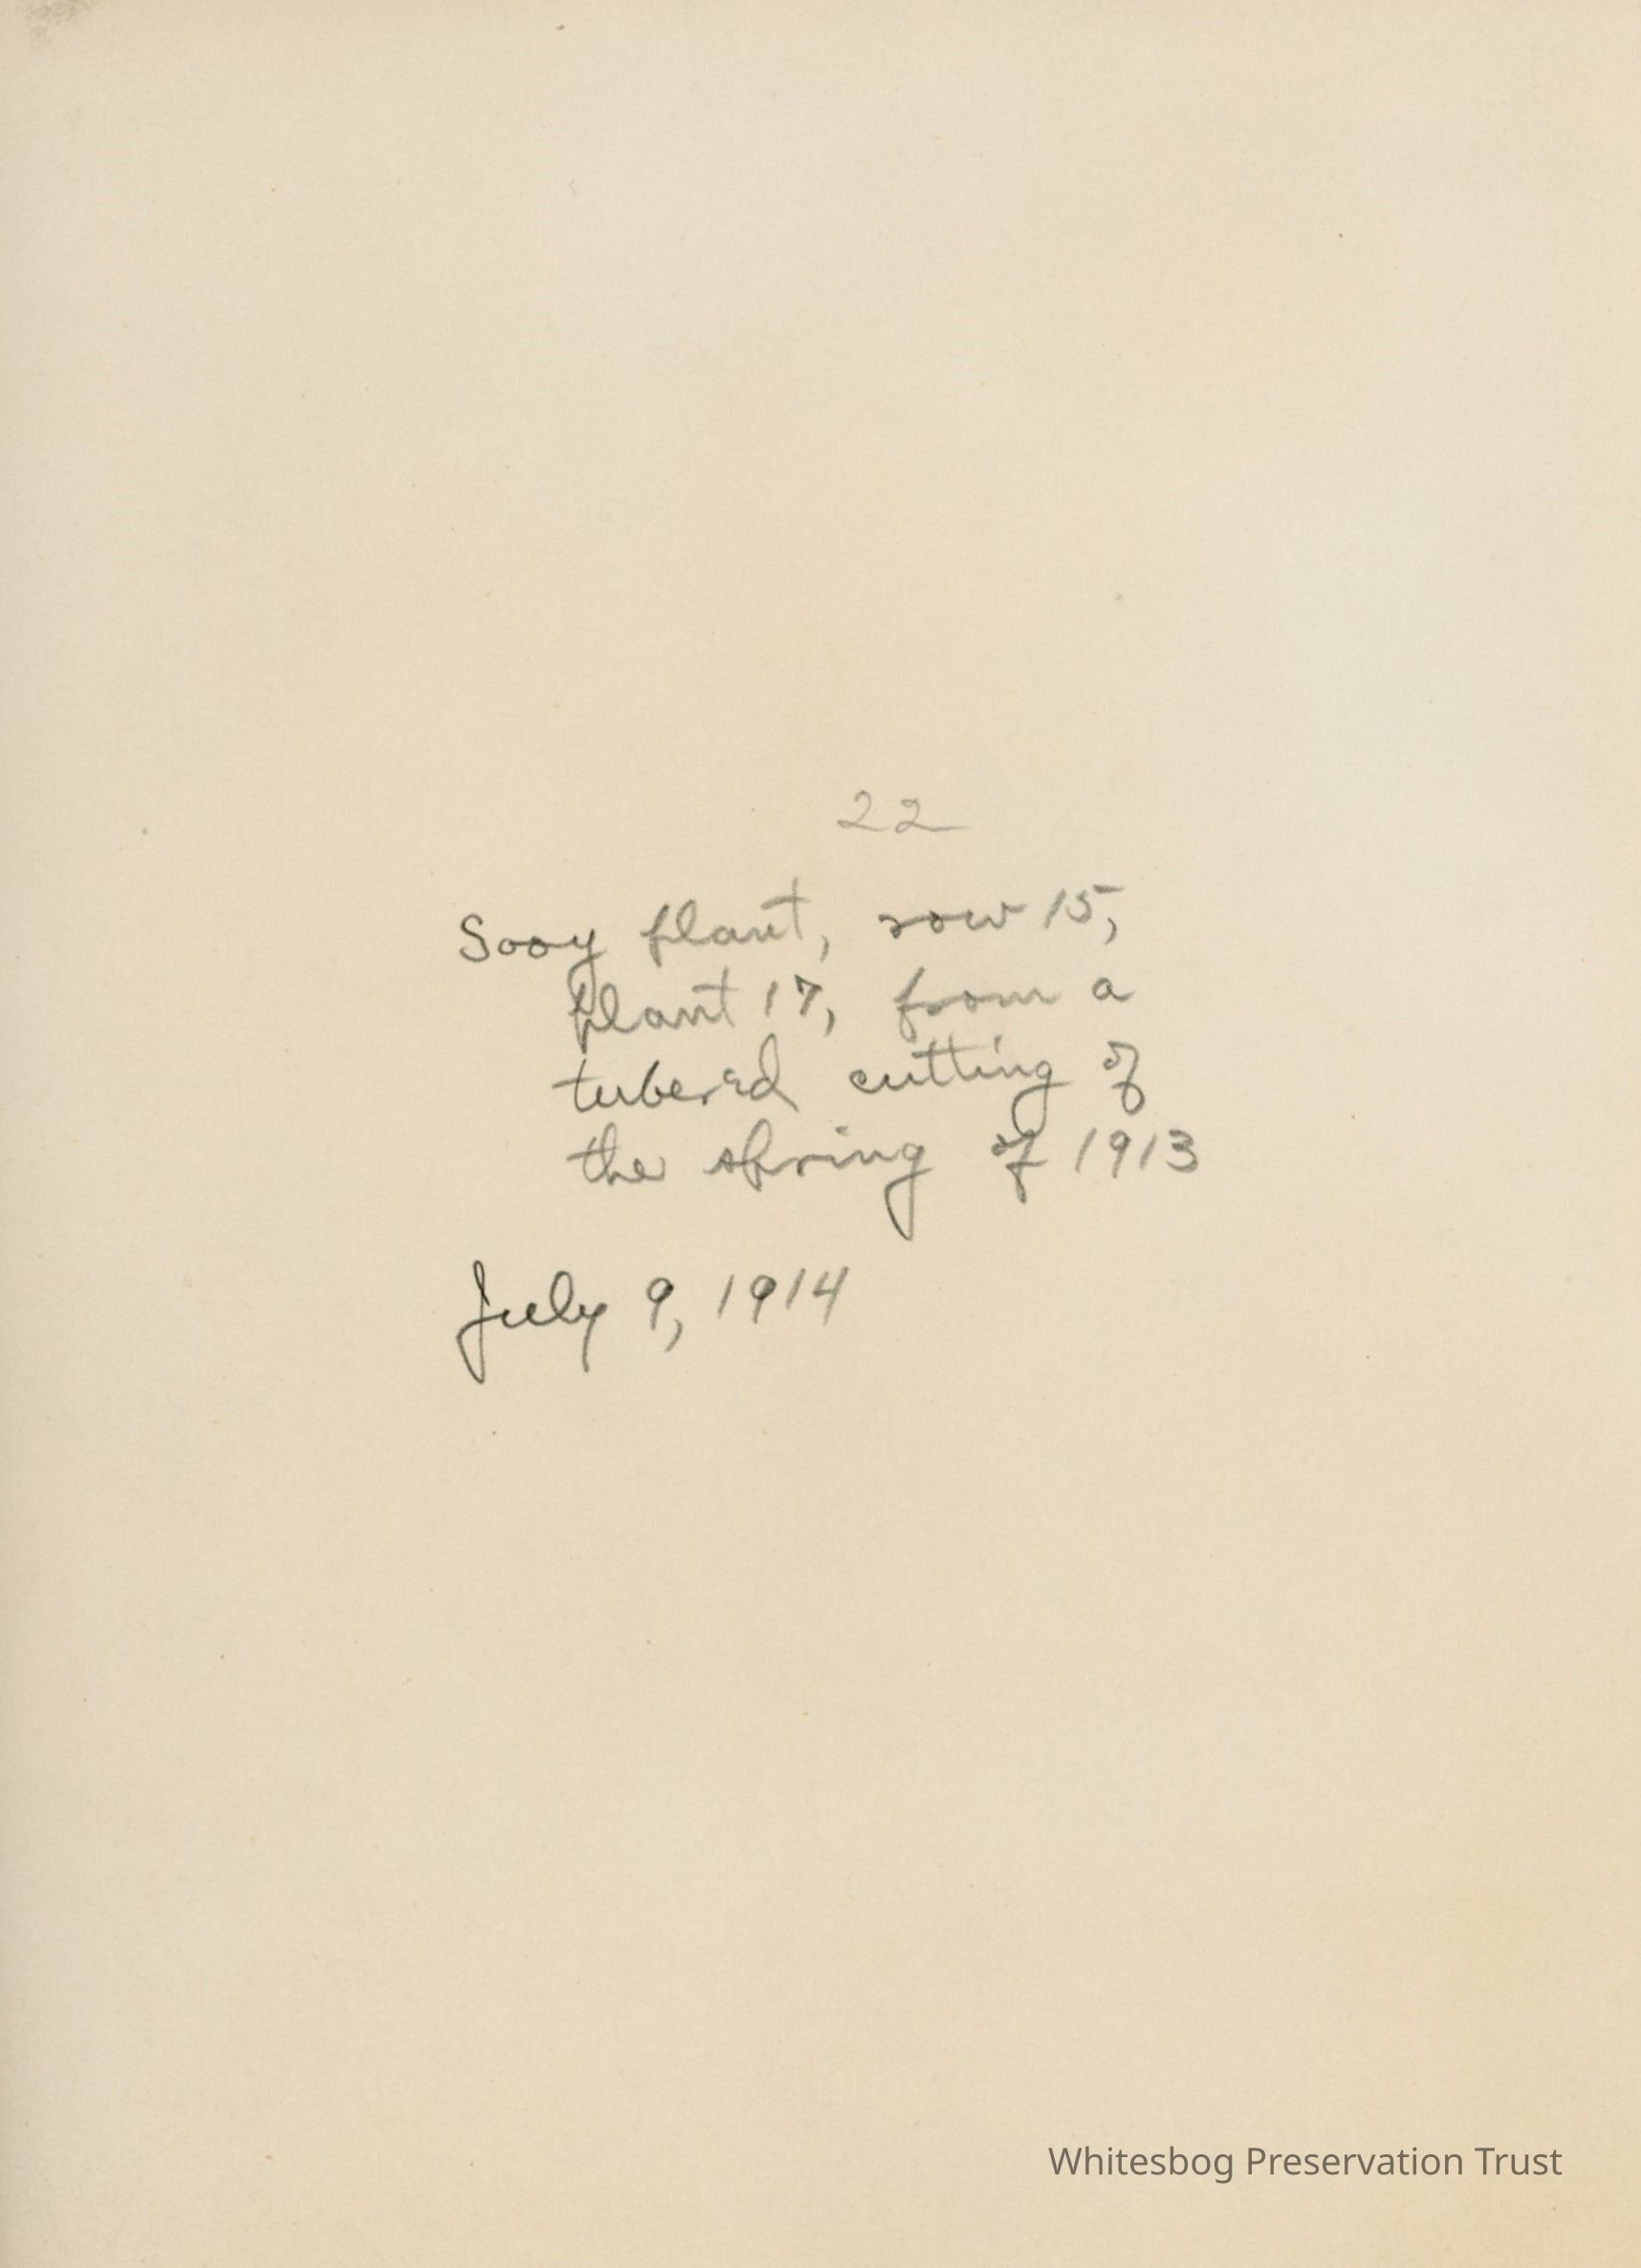 22
Sooy plant, row 15,
plant 17, from a
tubered cutting of
the spring of 1913
July 9, 1914
Whitesbog Preservation Trust